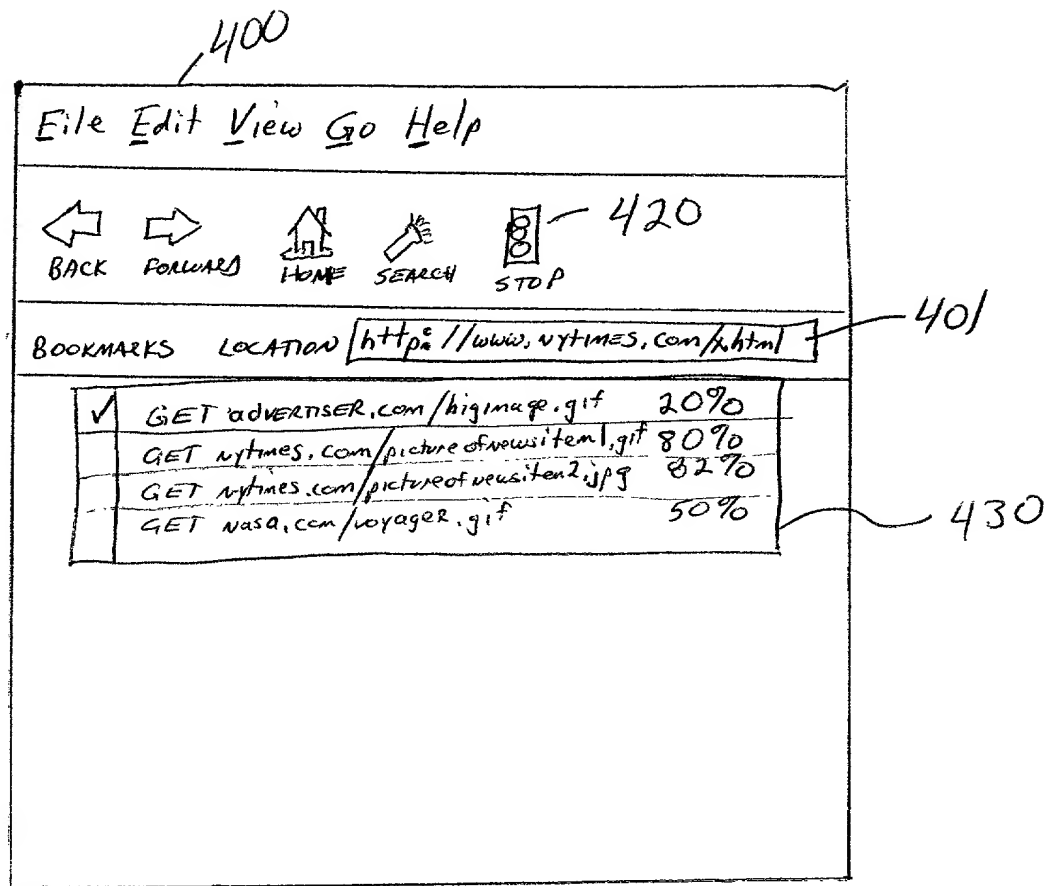 400
File Edit View Go Help
420
BACK FORWARD HOME SEARCH STOP
401
BOOKMARKS LOCATION http://www.nytimes.com/x.html
✓ GET advertiser.com/bigimage.gif 20%
GET nytimes.com/pictureofnewsitem1.gif 80%
GET nytimes.com/pictureofnewsitem2.jpg 82%
GET nasa.com/voyager.gif 50%
430